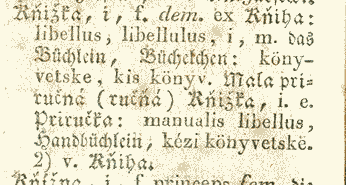 Kňižka, i, f. dem. ex Kňiha:
libellus, libellulus, i, m. das
Büchlein, Büchelchen: köny-
vetske, kis könyv. Mala pri-
ručná (ručná) Kňižka, i. e.
Priručka: manualis libellus,
Handbüchlein, kézi könyvetske.
2) v. Kňiha.
f. princeps fem. di-